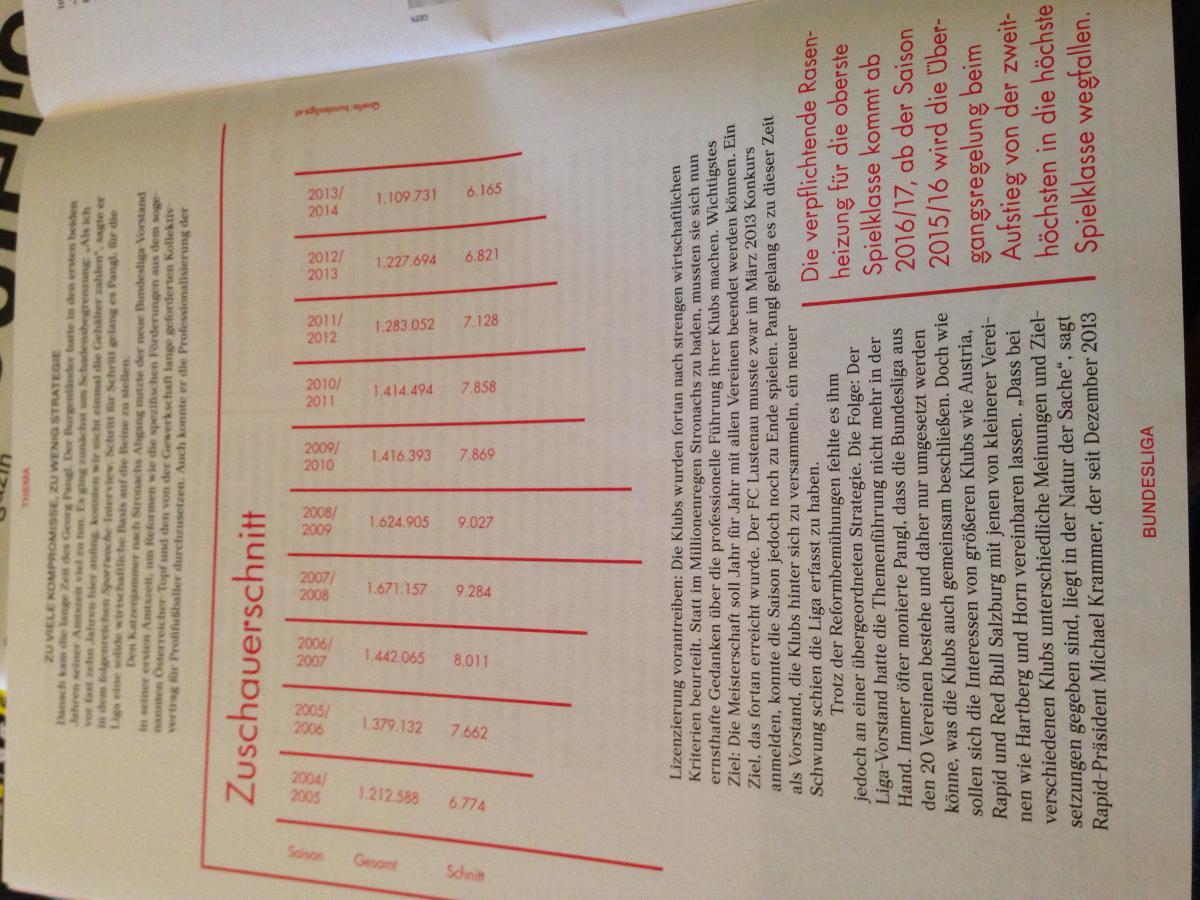 THEMA
ZU VIELE KOMPROMISSE, ZU WENIG STRATEGIE
Danach kam die lange Zeit des Georg Pangl. Der Burgenländer hatte in den ersten beiden
Jahren seiner Amtszeit viel zu tun. Es ging zunächst um Schadensbegrenzung: „Als ich
vor fast zehn Jahren hier anfing, konnten wir nicht einmal die Gehälter zahlen“, sagte er
in dem folgenreichen Sportwoche-Interview. Schritt für Schritt gelang es Pangl, für die
Liga eine solide wirtschaftliche Basis auf die Beine zu stellen.
Den Katzenjammer nach Stronachs Abgang nutzte der neue Bundesliga-Vorstand
in seiner ersten Amtszeit, um Reformen wie die spezifischen Förderungen aus dem soge-
nannten Österreicher-Topf und den von der Gewerkschaft lange geforderten Kollektiv-
vertrag für Profifußballer durchzusetzen. Auch konnte er die Professionalisierung der
Zuschauerschnitt
Saison 2004/2005 2005/2006 2006/2007 2007/2008 2008/2009 2009/2010 2010/2011 2011/2012 2012/2013 2013/2014
Gesamt 1.212.588 1.379.132 1.442.065 1.671.157 1.624.905 1.416.393 1.414.494 1.283.052 1.227.694 1.109.731
Schnitt 6.774 7.662 8.011 9.284 9.027 7.869 7.858 7.128 6.821 6.165
Quelle: bundesliga.at
Lizenzierung vorantreiben: Die Klubs wurden fortan nach strengen wirtschaftlichen
Kriterien beurteilt. Statt im Millionenregen Stronachs zu baden, mussten sie sich nun
ernsthafte Gedanken über die professionelle Führung ihrer Klubs machen. Wichtigstes
Ziel: Die Meisterschaft soll Jahr für Jahr mit allen Vereinen beendet werden können. Ein
Ziel, das fortan erreicht wurde. Der FC Lustenau musste zwar im März 2013 Konkurs
anmelden, konnte die Saison jedoch noch zu Ende spielen. Pangl gelang es zu dieser Zeit
als Vorstand, die Klubs hinter sich zu versammeln, ein neuer
Schwung schien die Liga erfasst zu haben.
Trotz der Reformbemühungen fehlte es ihm
jedoch an einer übergeordneten Strategie. Die Folge: Der
Liga-Vorstand hatte die Themenführung nicht mehr in der
Hand. Immer öfter monierte Pangl, dass die Bundesliga aus
den 20 Vereinen bestehe und daher nur umgesetzt werden
könne, was die Klubs auch gemeinsam beschließen. Doch wie
sollen sich die Interessen von größeren Klubs wie Austria,
Rapid und Red Bull Salzburg mit jenen von kleinerer Verei-
nen wie Hartberg und Horn vereinbaren lassen. „Dass bei
verschiedenen Klubs unterschiedliche Meinungen und Ziel-
setzungen gegeben sind, liegt in der Natur der Sache“, sagt
Rapid-Präsident Michael Krammer, der seit Dezember 2013
Die verpflichtende Rasen-
heizung für die oberste
Spielklasse kommt ab
2016/17, ab der Saison
2015/16 wird die Über-
gangsregelung beim
Aufstieg von der zweit-
höchsten in die höchste
Spielklasse wegfallen.
BUNDESLIGA